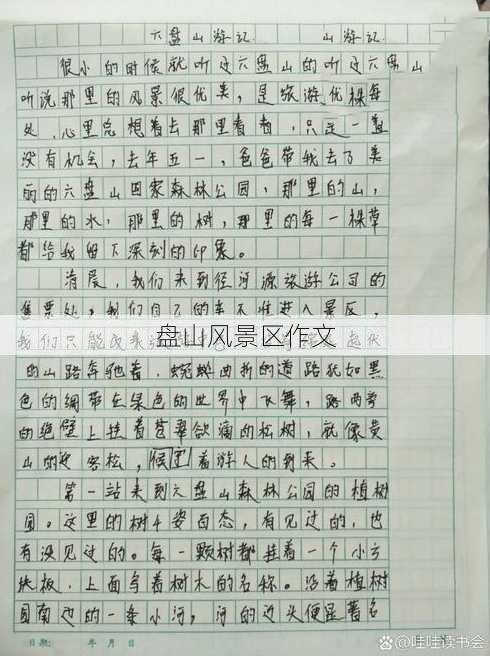 六盘山游记 山游记
很小的时候就听过六盘山的听过六盘山
听说那里的风景很优美，是旅游优
处，心里总想着去那里看看，只是一直
没有机会，去年五一，爸爸带我去了美
丽的六盘山国家森林公园，那里的山，
那里的水，那里的树，那里的每一棵草
都给我留下深刻的印象。
清晨，我们来到泾河源旅游公司的
售票处，我们自己的车不准进入景区，
我们只能改乘
盘山风景区作文
起伏
的山路奔驰着，蜿蜒曲折的道路犹如黑
色的绸带在绿色的世界中飞舞，路两旁
的绝壁上挂着苍翠欲滴的松树，就像黄
山的迎客松，候着游人的到来。
第一站来到六盘山森林公园的植树
园。这里的树千姿百态，有见过的，也
有没见过的。每一颗树都挂着一个小方
纸板，上面写着树木的名称。沿着植树
园南边的一条小河，河的边头便显著名
日期： 年 月 日
@哇哇读书会